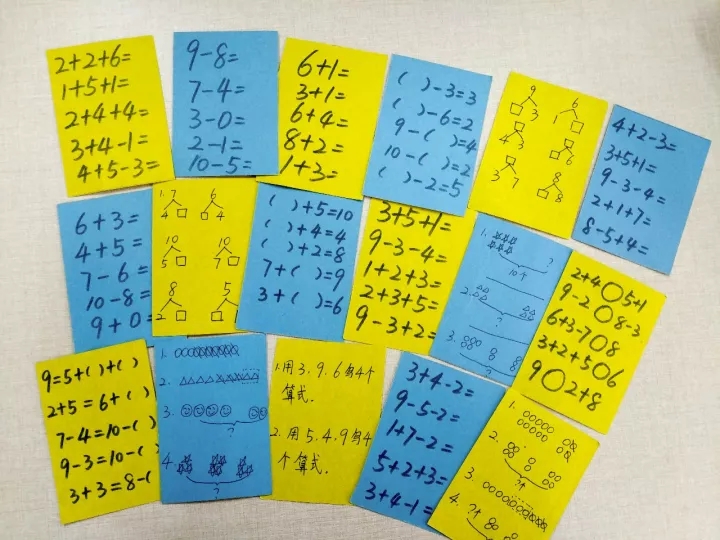 2+2+6=
1+5+1=
2+4+4=
3+4-1=
4+5-3=
9-8=
7-4=
3-0=
2-1=
10-5=
6+1=
3+1=
6+4=
8+2=
1+3=
( )-3=3
( )-6=2
9-( )=4
10-( )=2
( )-2=5
9 6
3 1
4 3 6
8
3 7 8
4+2-3=
3+5+1=
9-3-4=
2+1+7=
8-5+4=
6+3=
4+5=
7-6=
10-8=
9+0=
1. 7 6
4 4
10 10
5 7
8 5
2 2
( )+5=10
( )+4=4
( )+2=8
7+( )=9
3+( )=6
3+5+1=
9-3-4=
1+2+3=
2+3+5=
9-3+2=
1. ?
10个
2.
?
3.
?
2+4○5+1
9-2○8-3
6+3-7○8
3+2+5○6
9○2+8
9=5+( )+( )
2+5=6+( )
7-4=10-( )
9-3=10-( )
3+3=8-(
1.
2.
3.
?
4.
?
1.用3.9.6写4个
算式.
2.用5.4.9写4
个算式.
3+4-2=
9-5-2=
1+7-2=
5+2+3=
3+4-1=
1.
2.
3.
4. ?个